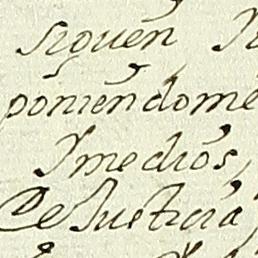 siguen
poniendome
Y medios,
De Justicia